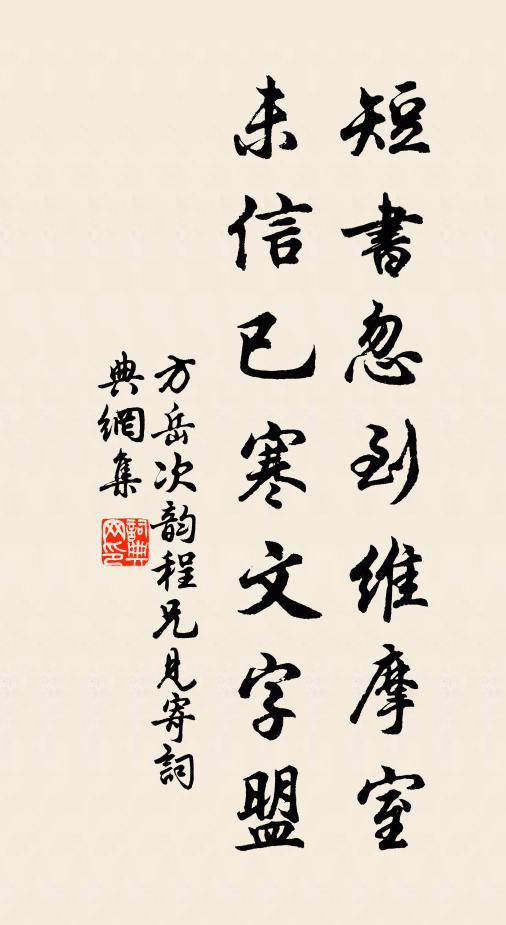 短書忽到維摩室
未信已寒文字盟
方岳次韵程兄見寄詞
典網集
詞典网印